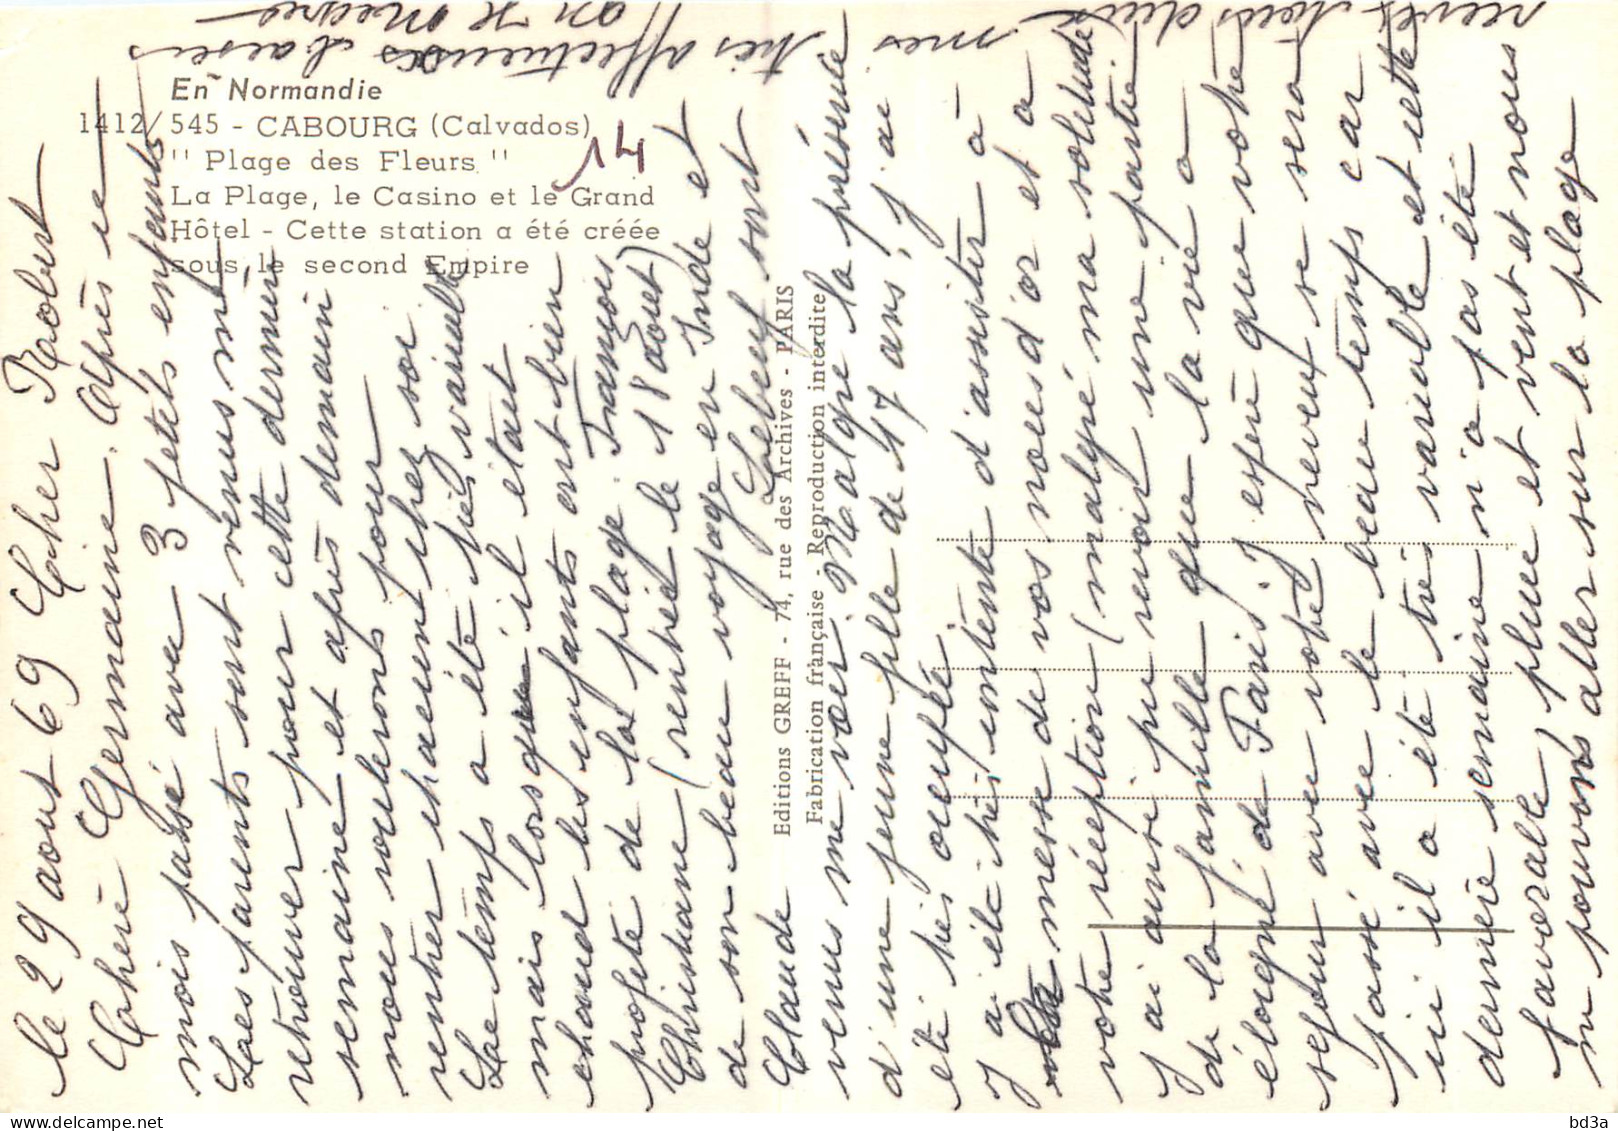 En Normandie
1412/545 - CABOURG (Calvados)
" Plage des Fleurs "
La Plage, le Casino et le Grand
Hôtel - Cette station a été créée
sous le second Empire
14
Editions GREFF - 74, rue des Archives - PARIS
Fabrication française - Reproduction interdite
le 29 aout 69 Cher Robert
Chère Germaine. Après ce
mois passé avec 3 petits enfants
Les parents sont venus me
retrouver pour cette dernière
semaine et après demain
nous roulerons pour
rentrer chacun chez soi
Le temps a été très variable
mais lorsque il était
chaud les enfants ont bien
profité de la plage. François
Christiane (rentrée le 18 aout)
de son beau voyage en Inde et
Claude Lebeuf sont
venus me voir. Malgré la présence
d'une jeune fille de 17 ans, j'ai
été très occupée
J'ai été très contente d'assister à
messe de vos noces d'or et a
votre réception (malgré ma solitude
J'ai aussi pu revoir une partie
de la famille que la vie a
éloigné de Paris. J'espère que votre
séjour avec votre neveu se sera
passé avec le beau temps car
ici il a été très variable et cette
dernière semaine n'a pas été
favorable, pluie et vent et nous
ne pouvons aller sur la plage
recevez tous deux mes très affectueux baisers